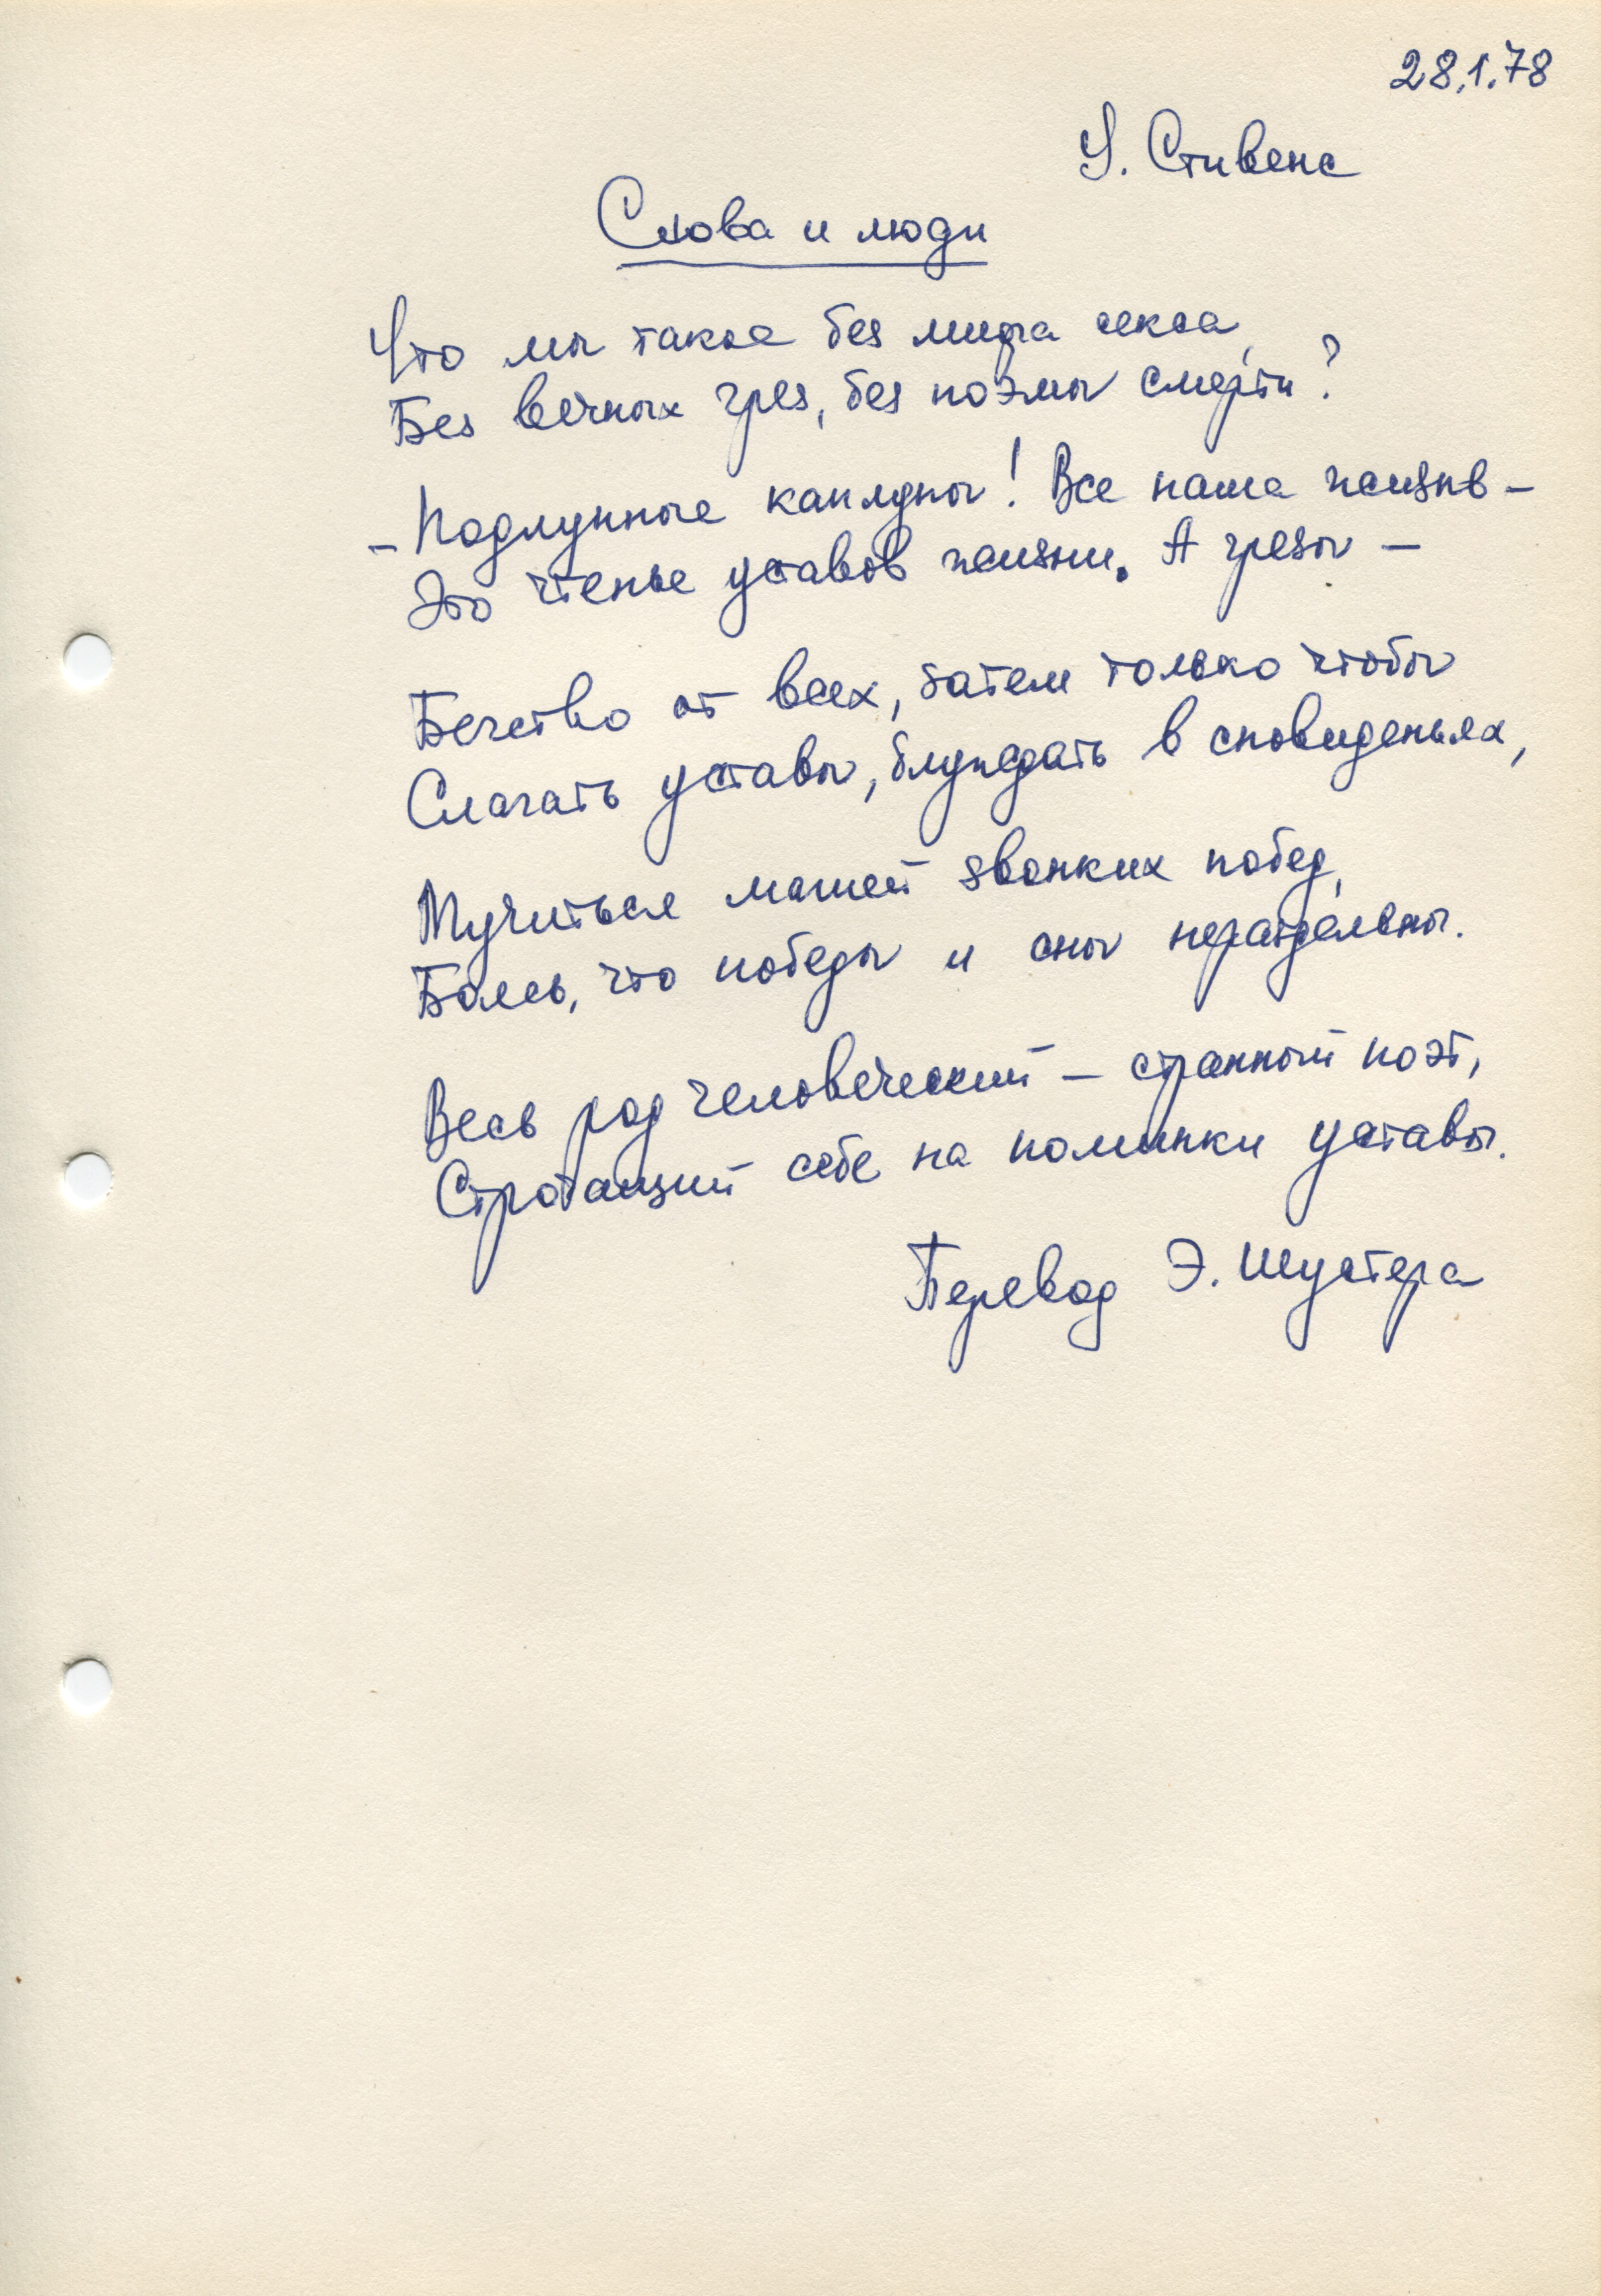 28.1.78
У. Стивенс
Слова и люди
Что мы такое без мифа секса,
Без вечных грез, без поэмы смерти?
– Подлунные каплуны! Все наша жизнь –
Это чтенье уставов жизни. А грезы –
Бегство от всех, затем только чтобы
Слагать уставы, блуждать в сновиденьях,
Мучиться манией звонких побед,
Боясь, что победы и сны нераздельны.
Весь род человеческий – странный поэт,
Строчащий себе на поминки уставы.
Перевод Э. Шустера